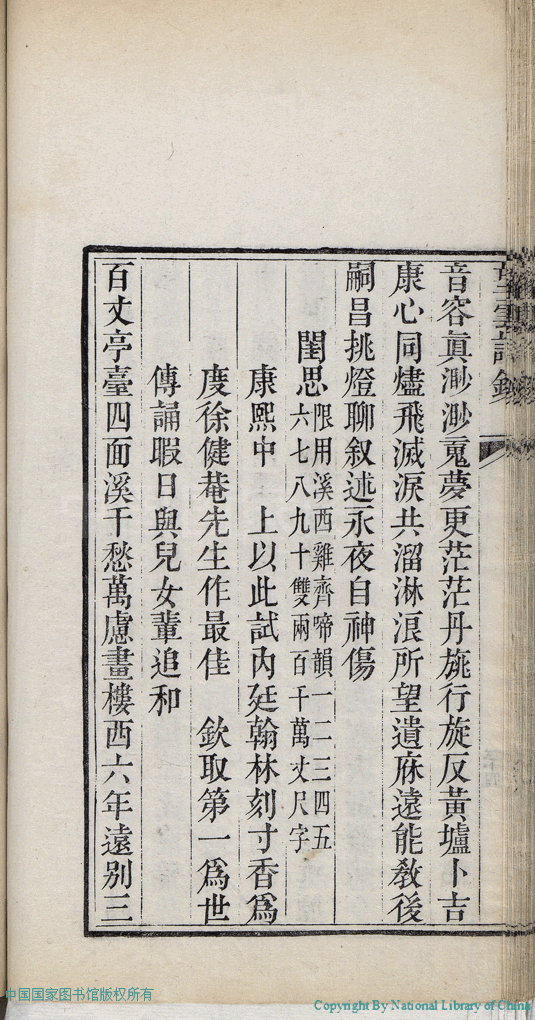 音容眞渺渺䰟夢更茫茫丹旐行旋反黃壚卜吉
康心同燼飛滅淚共溜淋浪所望遺庥遠能教後
嗣昌挑燈聊叙述永夜自神傷
閨思限用溪西雞齊啼韻一二三四五
六七八九十雙兩百千萬丈尺字
康熙中　上以此試內廷翰林刻寸香爲
度徐健菴先生作最佳　欽取第一爲世
傳誦暇日與兒女輩追和
百丈亭臺四面溪千愁萬慮畫樓西六年遠别三
中国国家图书馆版权所有
Copyright By National Library of China